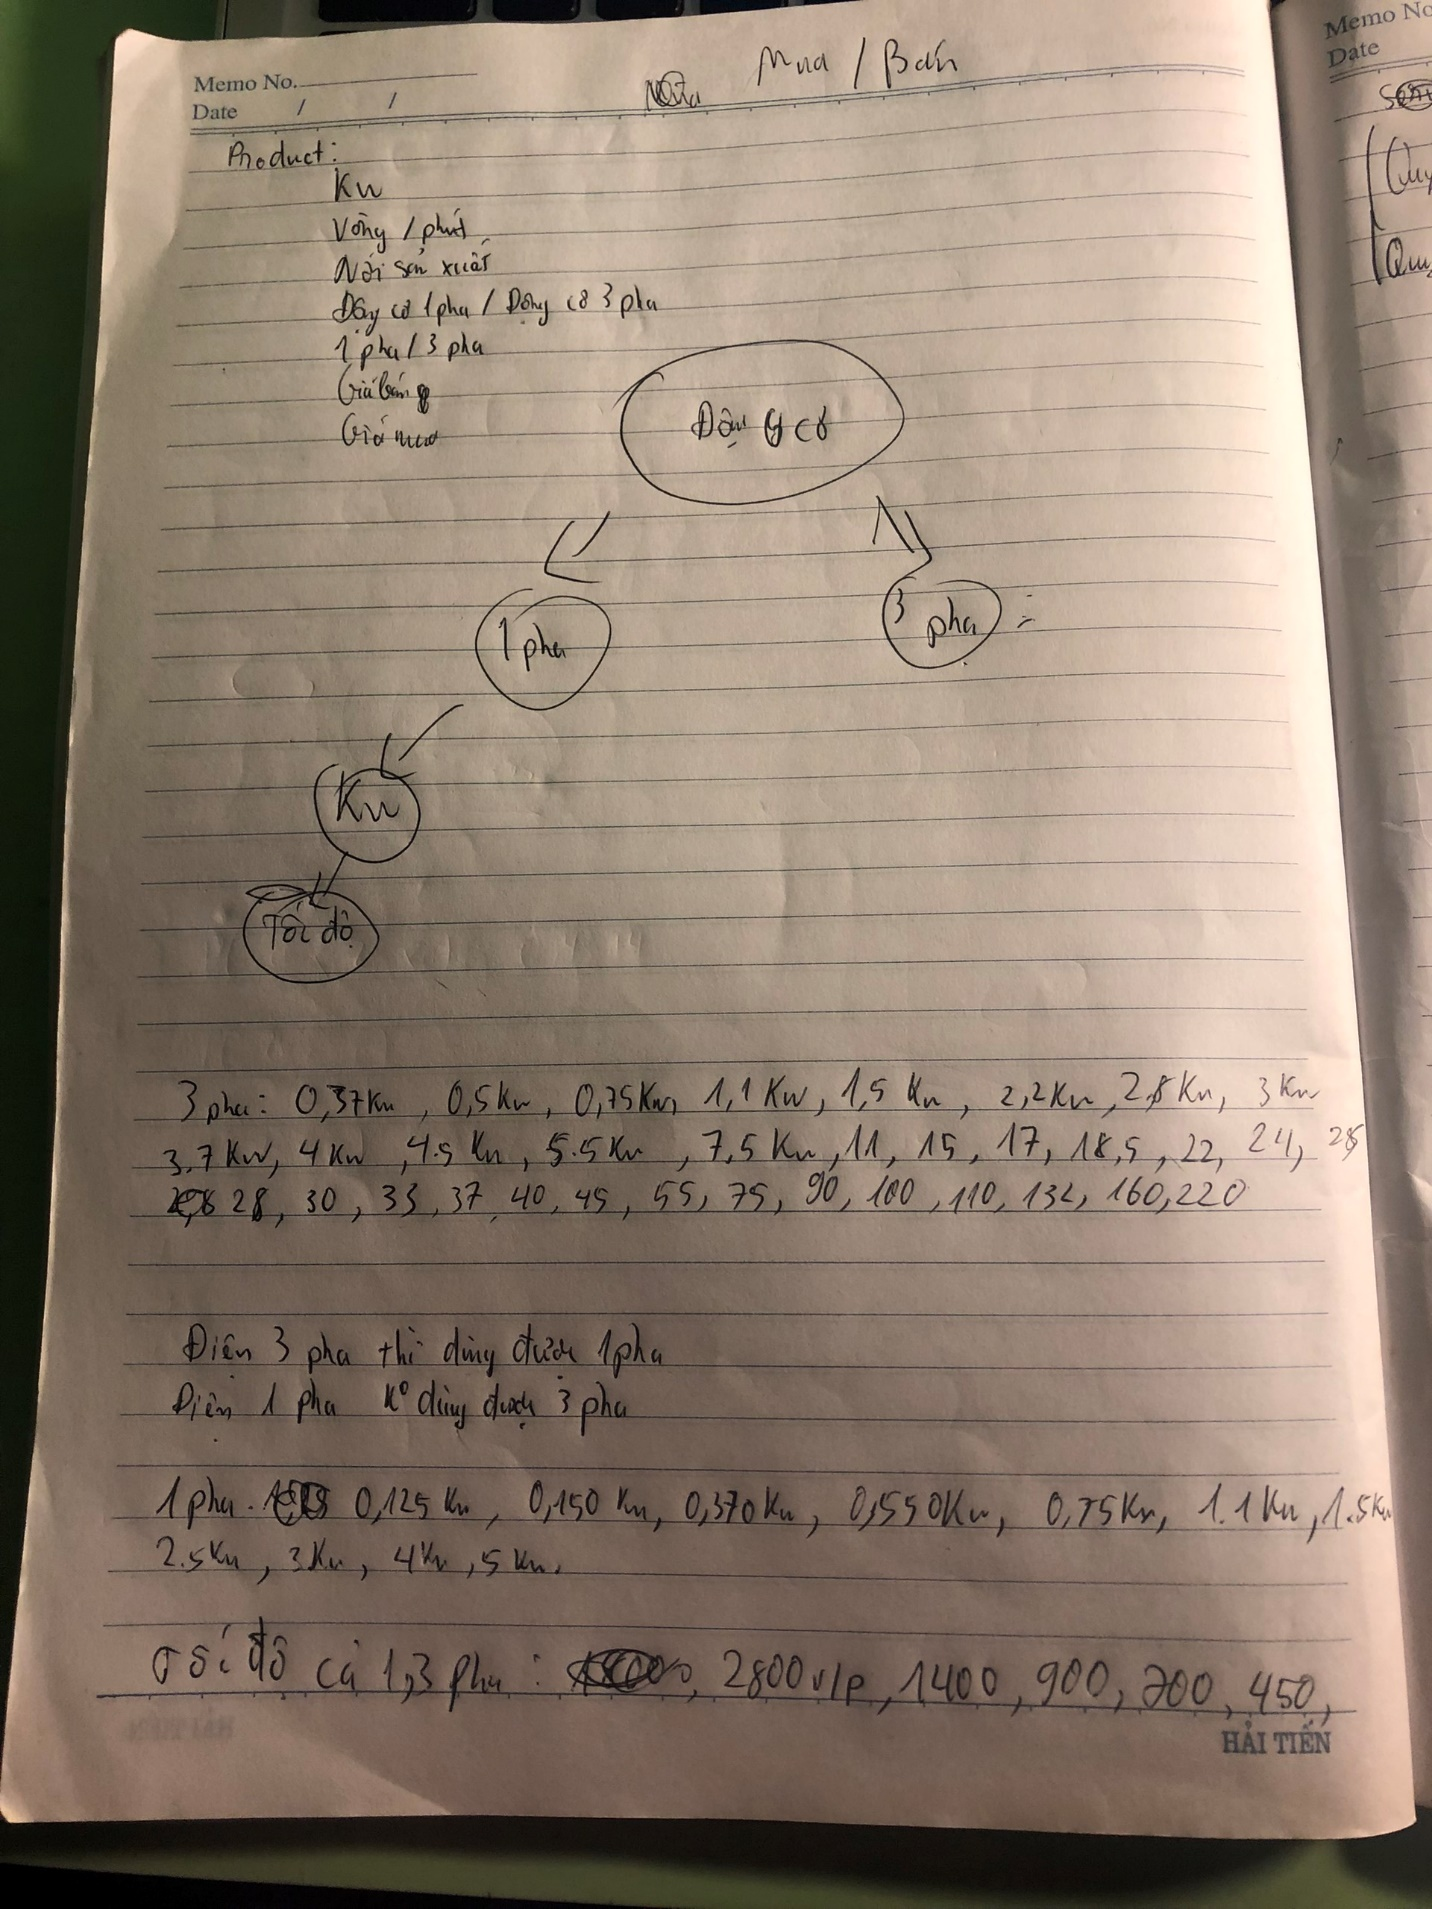 Memo No.
Date / /
Mua / Bán
Product:
Kw
Vòng / phút
Nơi sản xuất
Động cơ 1 pha / Động cơ 3 pha
1 pha / 3 pha
Giá bán
Giá mua
Động cơ
1 pha
3 pha :
Kw
Tốc độ
3 pha: 0,37Kw, 0,5Kw, 0,75Kw, 1,1 Kw, 1,5 Kw, 2,2Kw, 2,8Kw, 3Kw
3.7 Kw, 4Kw, 4.5 Kw, 5.5Kw, 7,5 Kw, 11, 15, 17, 18,5, 22, 24, 25
28, 30, 33, 37, 40, 45, 55, 75, 90, 100, 110, 132, 160, 220
Điện 3 pha thì dùng được 1 pha
Điện 1 pha K° dùng được 3 pha
1 pha. 0,125 Kw, 0,150 Kw, 0,370 Kw, 0,550Kw, 0,75Kw, 1.1Kw, 1.5Kw
2.5Kw, 3Kw, 4Kw, 5 Kw.
Tốc độ cả 1,3 pha : 2800 v/p, 1400, 900, 700, 450,
HẢI TIẾN
Memo No
Date